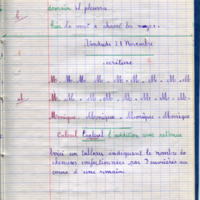 demain il pleuvra
Vendredi 28 Novembre
écriture
M. M. M. M. M. M. M. M.
M. M. M. M. M. M. M. M.
Monique. Monique. Monique. Monique
Calcul L'addition avec retenue
Voici un tableau indiquant le nombre de
chemises confectionnées par 3 ouvrières au
cours d'une semaine